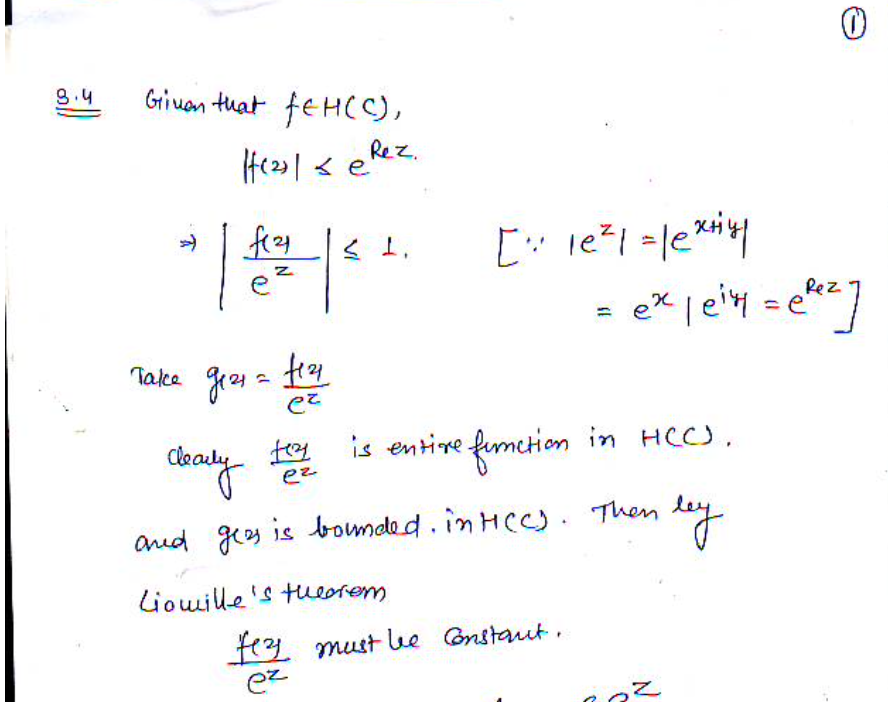 ①
3.4 Given that f∈H(C),
|f(z)| ≤ e^{Re z}.
⇒ | f(z) / e^z | ≤ 1. [∵ |e^z| = |e^{x+iy}|
= e^x |e^{iy}| = e^{Re z}]
Take g(z) = f(z) / e^z
Clearly f(z) / e^z is entire function in H(C).
and g(z) is bounded. in H(C). Then by
Liouville's theorem
f(z) / e^z must be Constant.